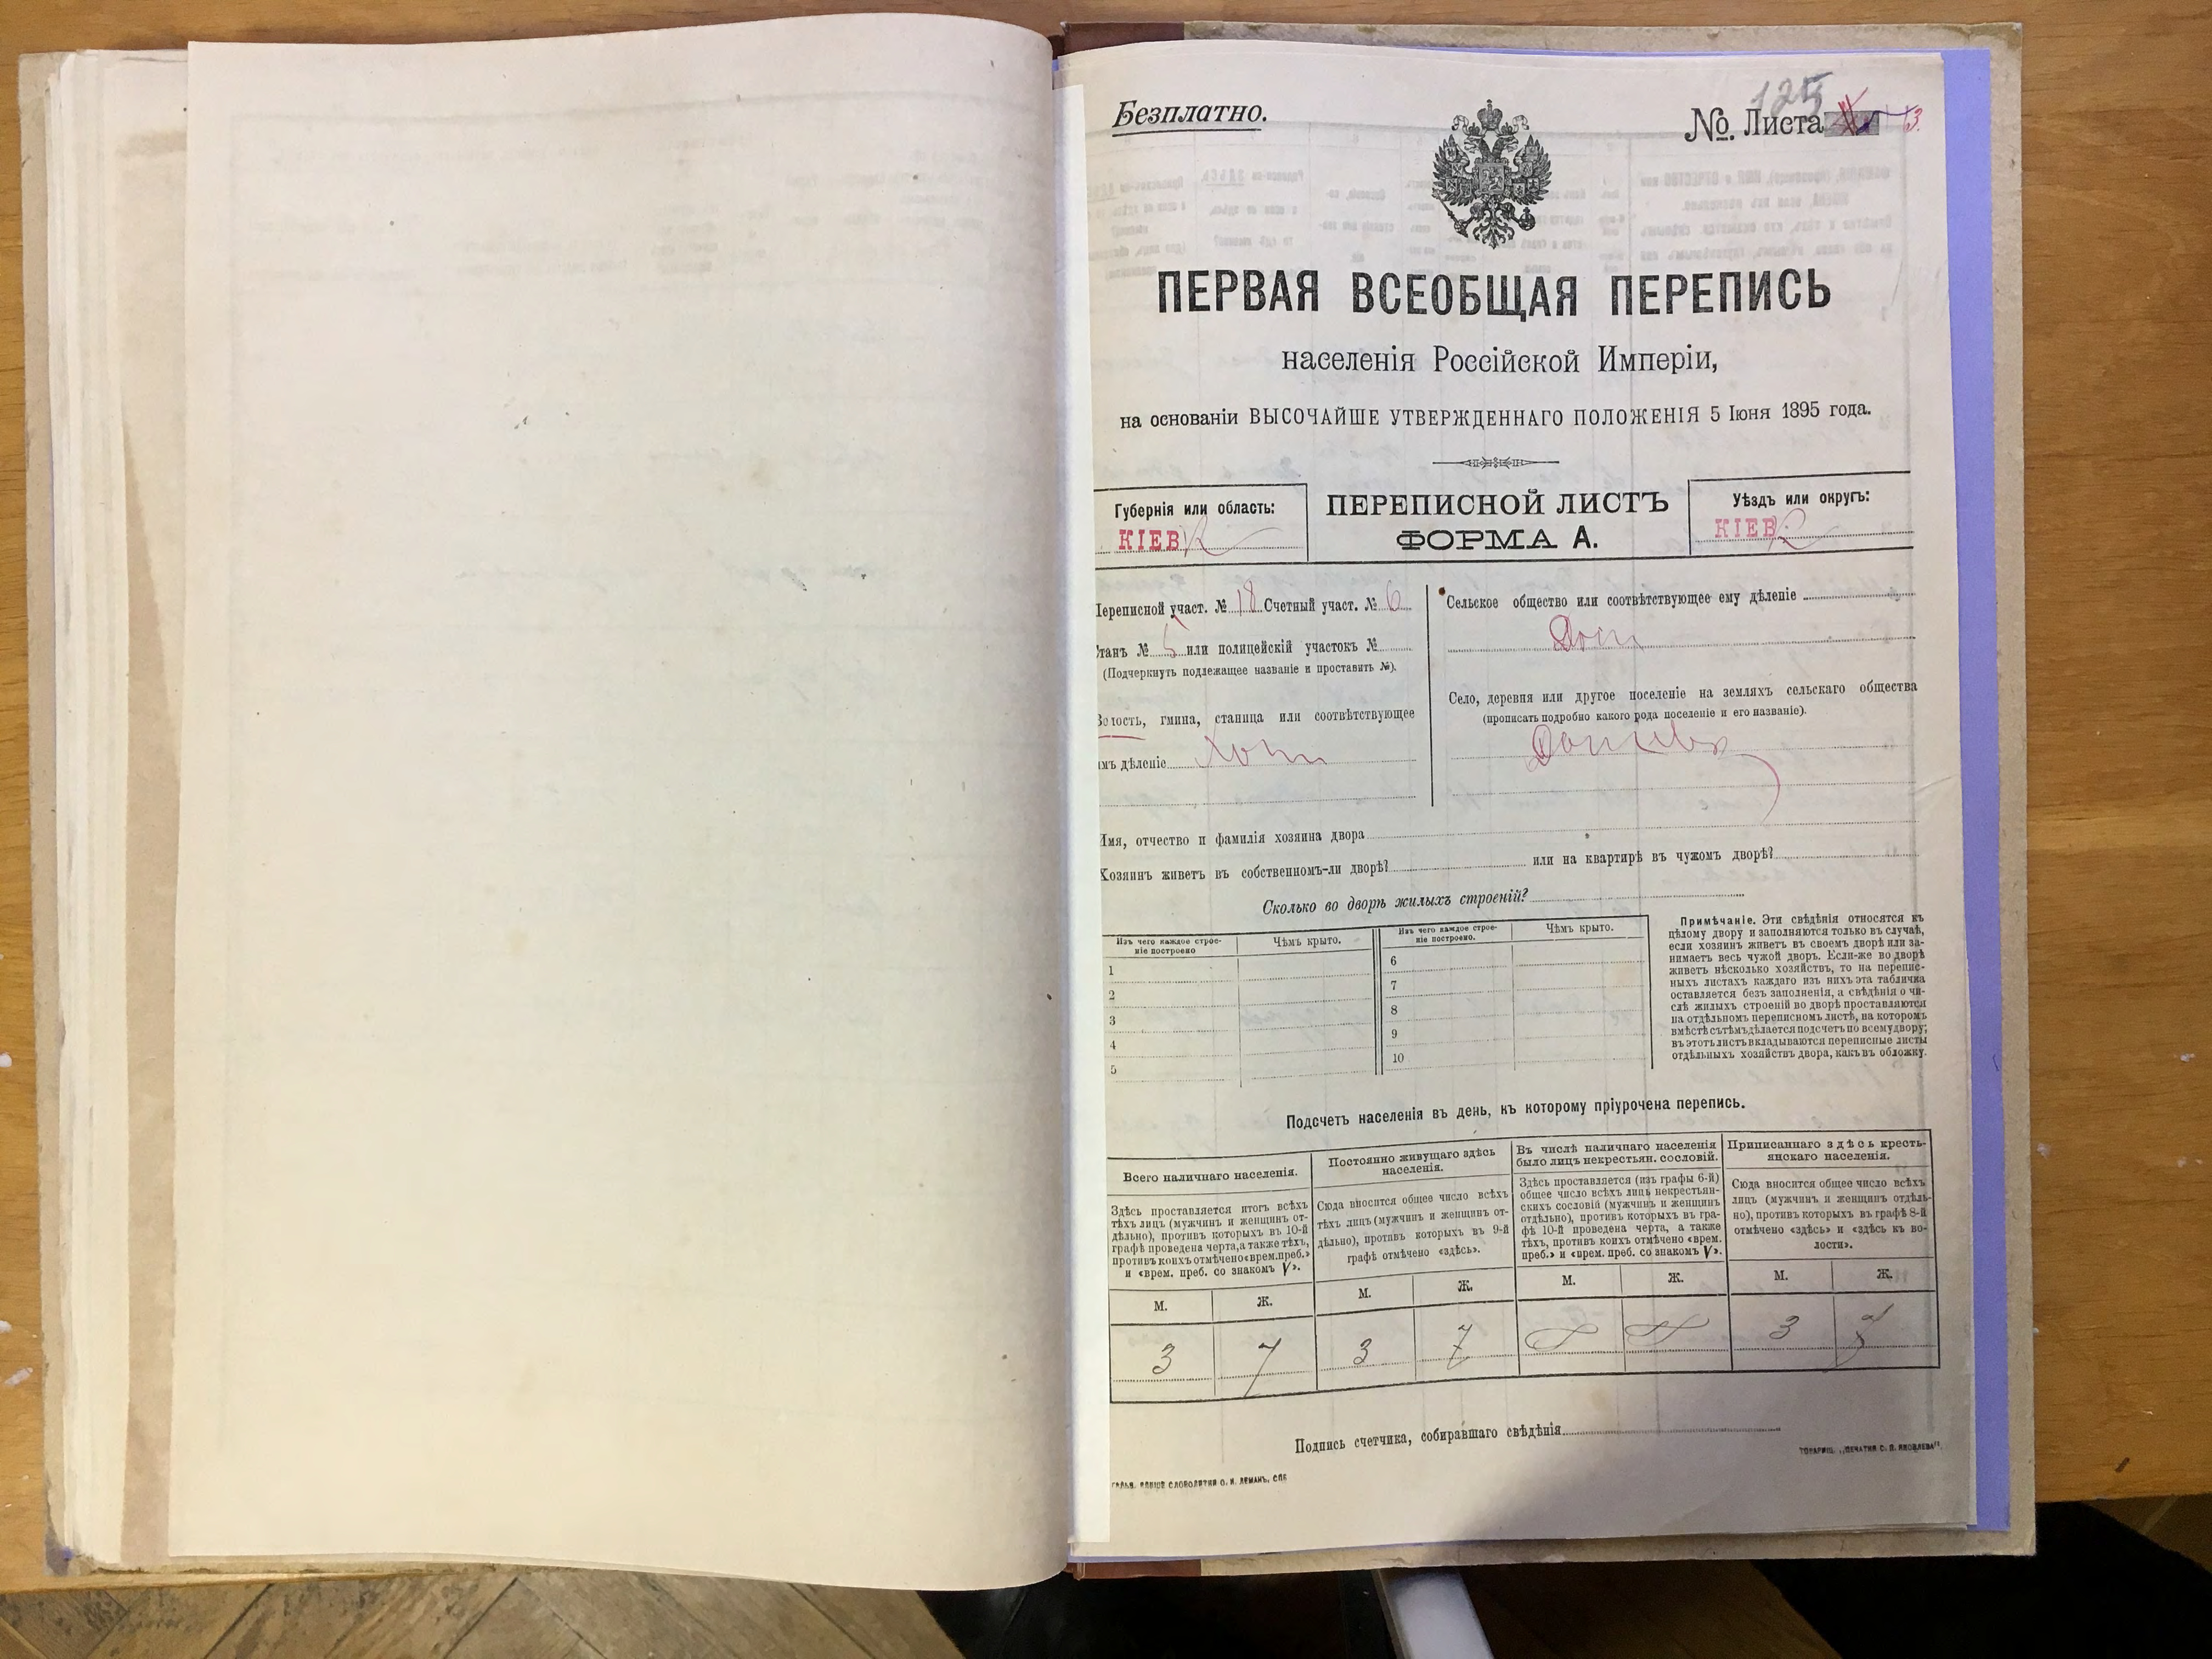 Безплатно.
125
№. Листа 3.
ПЕРВАЯ ВСЕОБЩАЯ ПЕРЕПИСЬ
населенія Россійской Имперіи,
на основаніи ВЫСОЧАЙШЕ УТВЕРЖДЕННАГО ПОЛОЖЕНІЯ 5 Іюня 1895 года.
Губернія или область:
КІЕВ
ПЕРЕПИСНОЙ ЛИСТЪ
ФОРМА А.
Уѣздъ или округъ:
КІЕВ
Переписной участ. № 18 Счетный участ. № 6
Станъ № 5 или полицейскій участокъ №
(Подчеркнуть подлежащее названіе и проставить №).
Волость, гмина, станица или соотвѣтствующее
имъ дѣленіе
Сельское общество или соотвѣтствующее ему дѣленіе
Село, деревня или другое поселеніе на земляхъ сельскаго общества
(прописать подробно какого рода поселеніе и его названіе).
Имя, отчество и фамилія хозяина двора
Хозяинъ живетъ въ собственномъ-ли дворѣ? или на квартирѣ въ чужомъ дворѣ?
Сколько во дворѣ жилыхъ строеній?
Изъ чего каждое строе-
ніе построено
Чѣмъ крыто.
1
2
3
4
5
Изъ чего каждое строе-
ніе построено.
Чѣмъ крыто.
6
7
8
9
10
Примѣчаніе. Эти свѣдѣнія относятся къ
цѣлому двору и заполняются только въ случаѣ,
если хозяинъ живетъ въ своемъ дворѣ или за-
нимаетъ весь чужой дворъ. Если-же во дворѣ
живетъ нѣсколько хозяйствъ, то на перепис-
ныхъ листахъ каждаго изъ нихъ эта табличка
оставляется безъ заполненія, а свѣдѣнія о чи-
слѣ жилыхъ строеній во дворѣ проставляются
на отдѣльномъ переписномъ листѣ, на которомъ
вмѣстѣ съ тѣмъ дѣлается подсчетъ по всему двору;
въ этотъ листъ вкладываются переписные листы
отдѣльныхъ хозяйствъ двора, какъ въ обложку.
Подсчетъ населенія въ день, къ которому пріурочена перепись.
Всего наличнаго населенія.
Здѣсь проставляется итогъ всѣхъ
тѣхъ лицъ (мужчинъ и женщинъ от-
дѣльно), противъ которыхъ въ 10-й
графѣ проведена черта, а также тѣхъ,
противъ коихъ отмѣчено «врем. преб.»
и «врем. преб. со знакомъ V».
М. Ж.
3 7
Постоянно живущаго здѣсь
населенія.
Сюда вносится общее число всѣхъ
тѣхъ лицъ (мужчинъ и женщинъ от-
дѣльно), противъ которыхъ въ 9-й
графѣ отмѣчено «здѣсь».
М. Ж.
3 7
Въ числѣ наличнаго населенія
было лицъ некрестьян. сословій.
Здѣсь проставляется (изъ графы 6-й)
общее число всѣхъ лицъ некрестьян-
скихъ сословій (мужчинъ и женщинъ
отдѣльно), противъ которыхъ въ гра-
фѣ 10-й проведена черта, а также
тѣхъ, противъ коихъ отмѣчено «врем.
преб.» и «врем. преб. со знакомъ V».
М. Ж.
Приписаннаго здѣсь кресть-
янскаго населенія.
Сюда вносится общее число всѣхъ
лицъ (мужчинъ и женщинъ отдѣль-
но), противъ которыхъ въ графѣ 8-й
отмѣчено «здѣсь» и «здѣсь къ во-
лости».
М. Ж.
3
Подпись счетчика, собиравшаго свѣдѣнія
СЛОВОЛИТНИ О. И. ЛЕМАНЪ, СПБ
ТОВАРИЩ. „ПЕЧАТНЯ С. П. ЯКОВЛЕВА“.